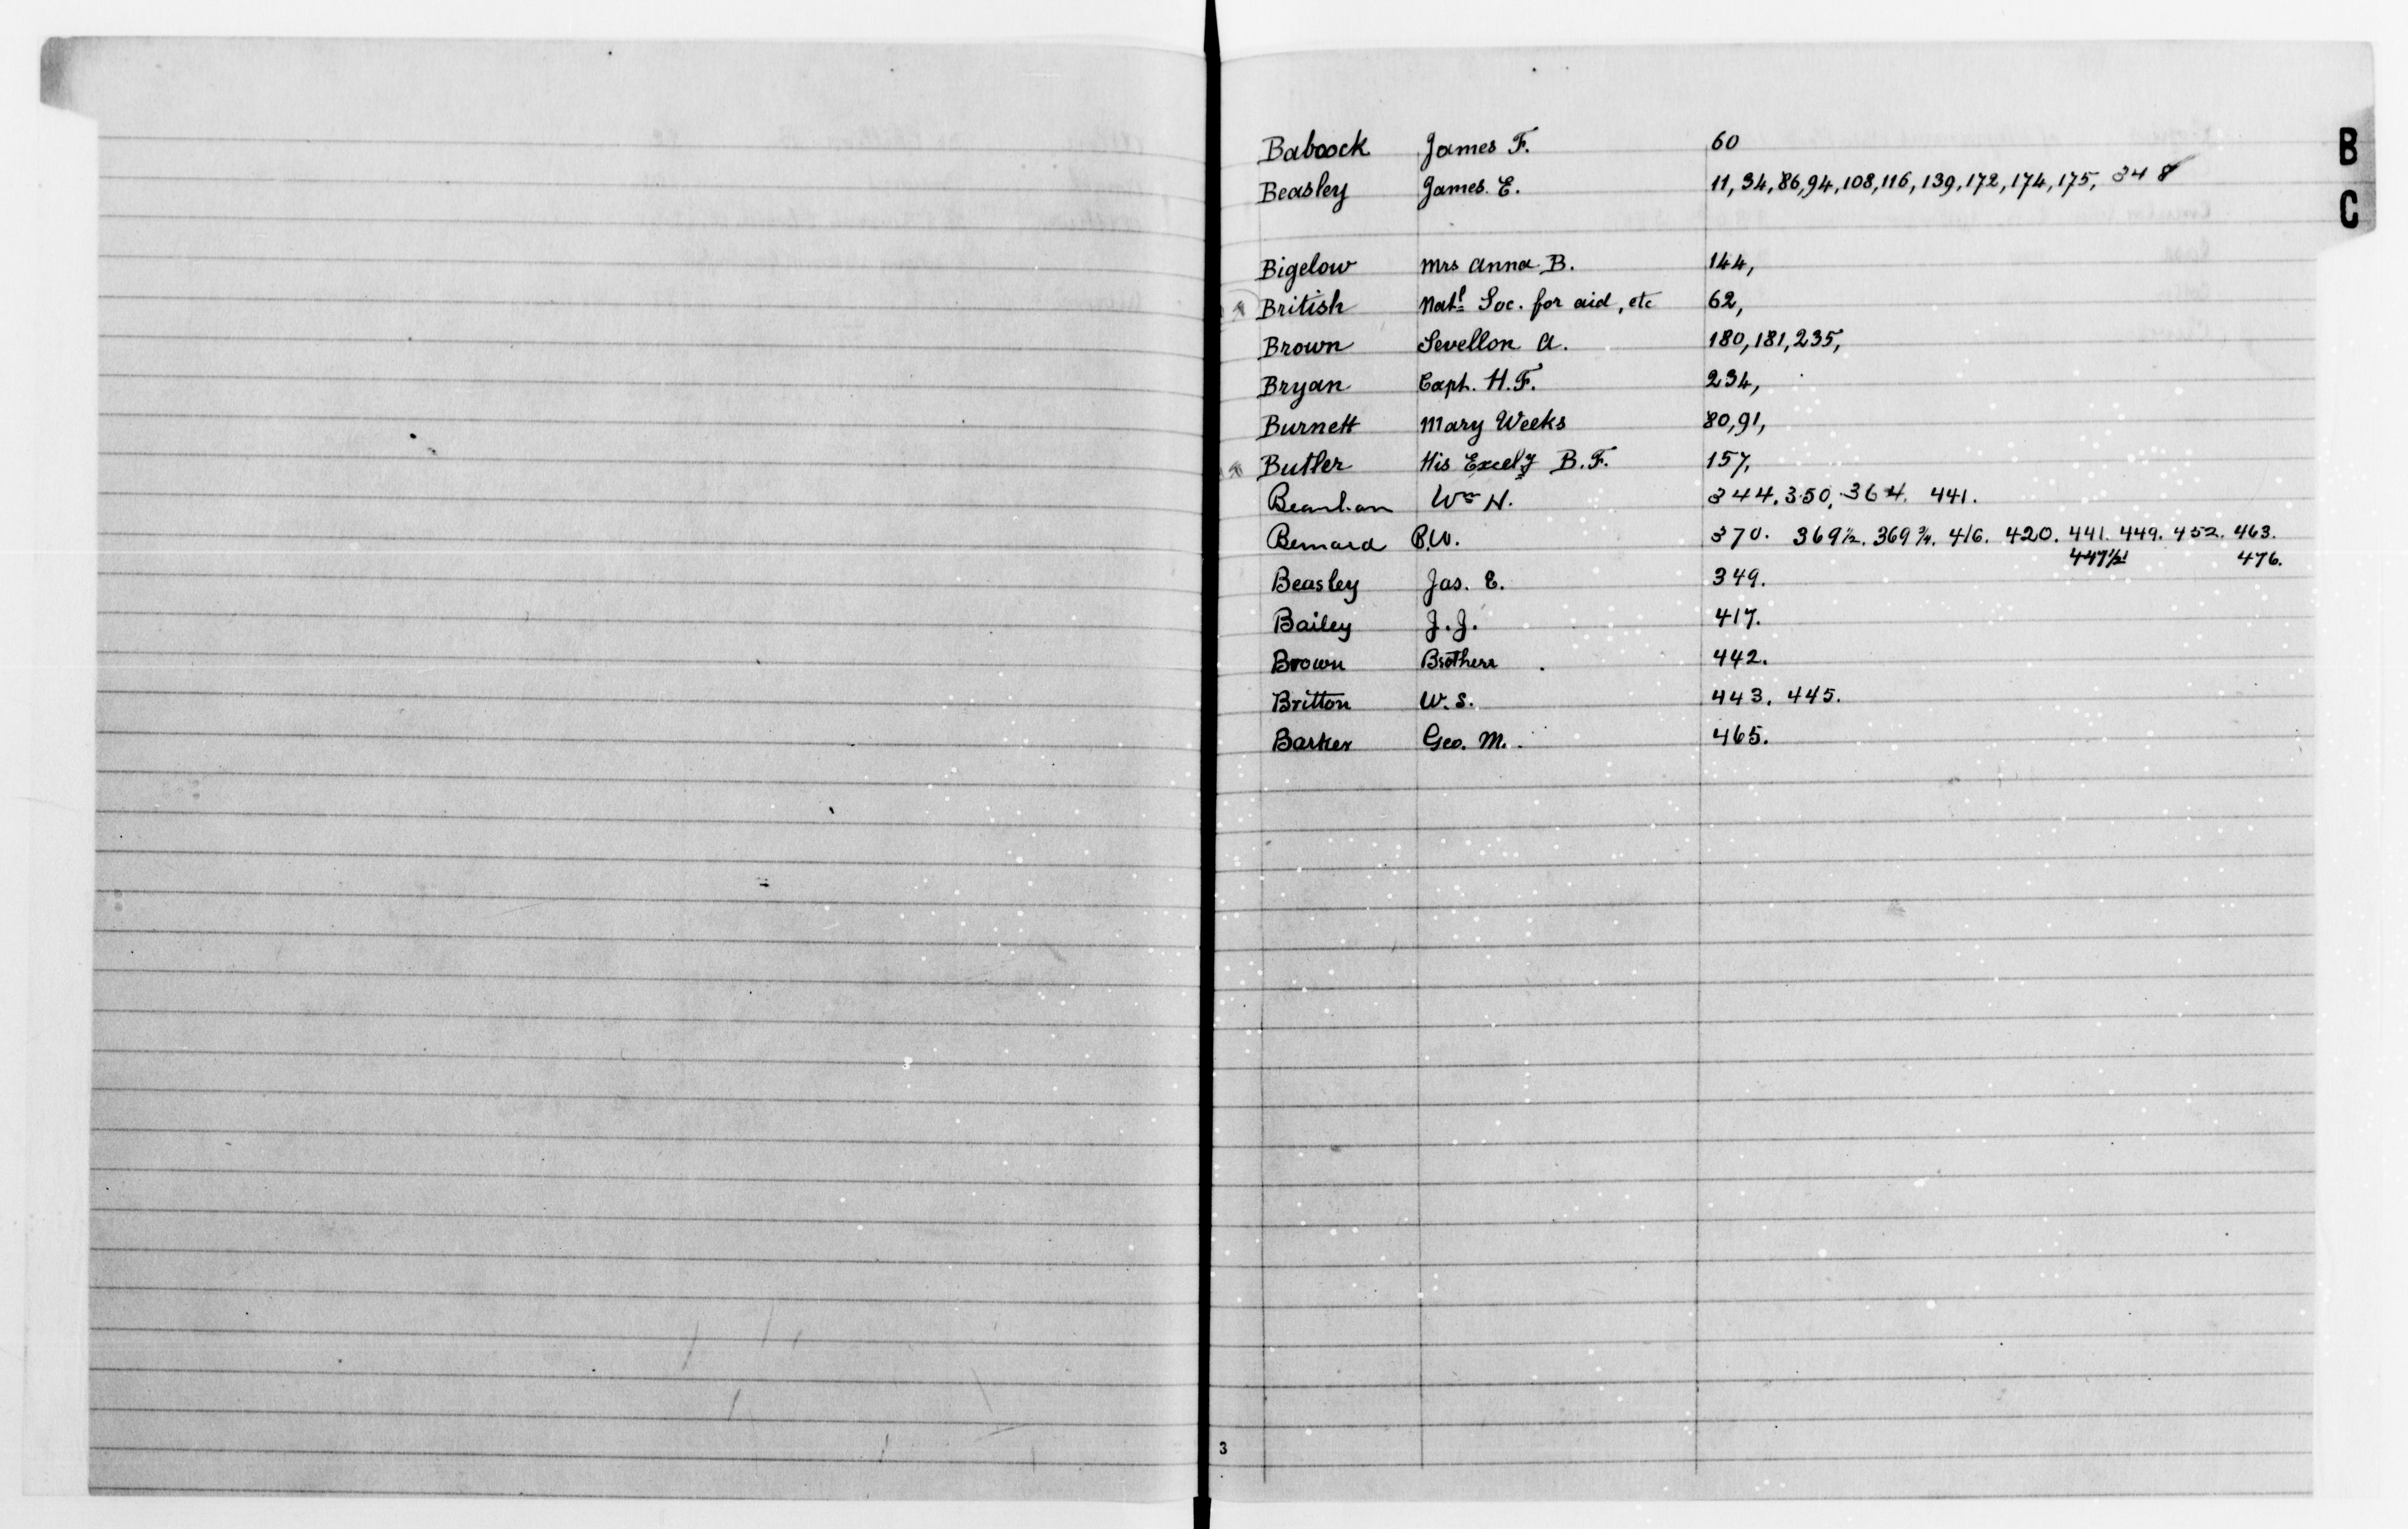 B
C
Babcock James F. 60
Beasley James E. 11, 34, 86, 94, 108, 116, 139, 172, 174, 175, 348
Bigelow Mrs Anna B. 144,
British Natl Soc. for aid, etc 62,
Brown Sevellon A. 180, 181, 235,
Bryan Capt. H.F. 234,
Burnett Mary Weeks 80, 91,
Butler His Excely B.F. 157,
Wm H. 344. 350. 364. 441.
Bernard P.W. 370. 369½. 369¾. 416. 420. 441. 449. 452. 463.
447½ 476.
Beasley Jas. E. 349.
Bailey J.J. 417.
Brown Brothers 442.
Britton W.S. 443. 445.
Barker Geo. M. 465.
3